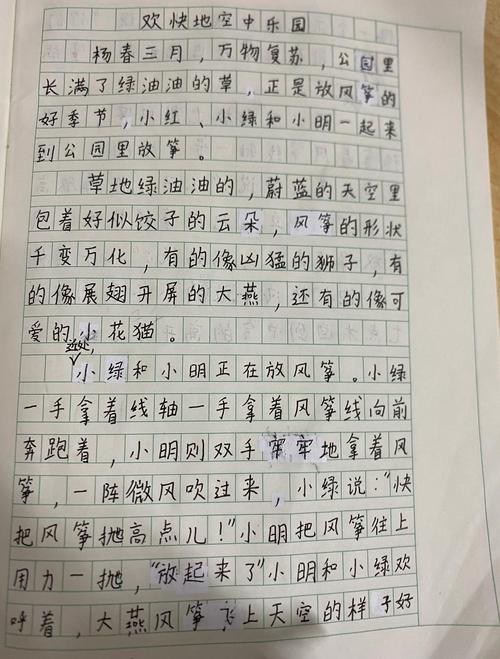 欢快地空中乐园
杨春三月，万物复苏，公园里
长满了绿油油的草，正是放风筝的
好季节，小红、小绿和小明一起来
到公园里放筝。
草地绿油油的，蔚蓝的天空里
包着好似饺子的云朵，风筝的形状
千变万化，有的像凶猛的狮子，有
的像展翅开屏的大燕，还有的像可
爱的小花猫。
近处，
小绿和小明正在放风筝。小绿
一手拿着线轴一手拿着风筝线向前
奔跑着，小明则双手牢牢地拿着风
筝，一阵微风吹过来，小绿说：“快
把风筝抛高点儿！”小明把风筝往上
用力一抛，“放起来了”小明和小绿欢
呼着，大燕风筝飞上天空的样子好